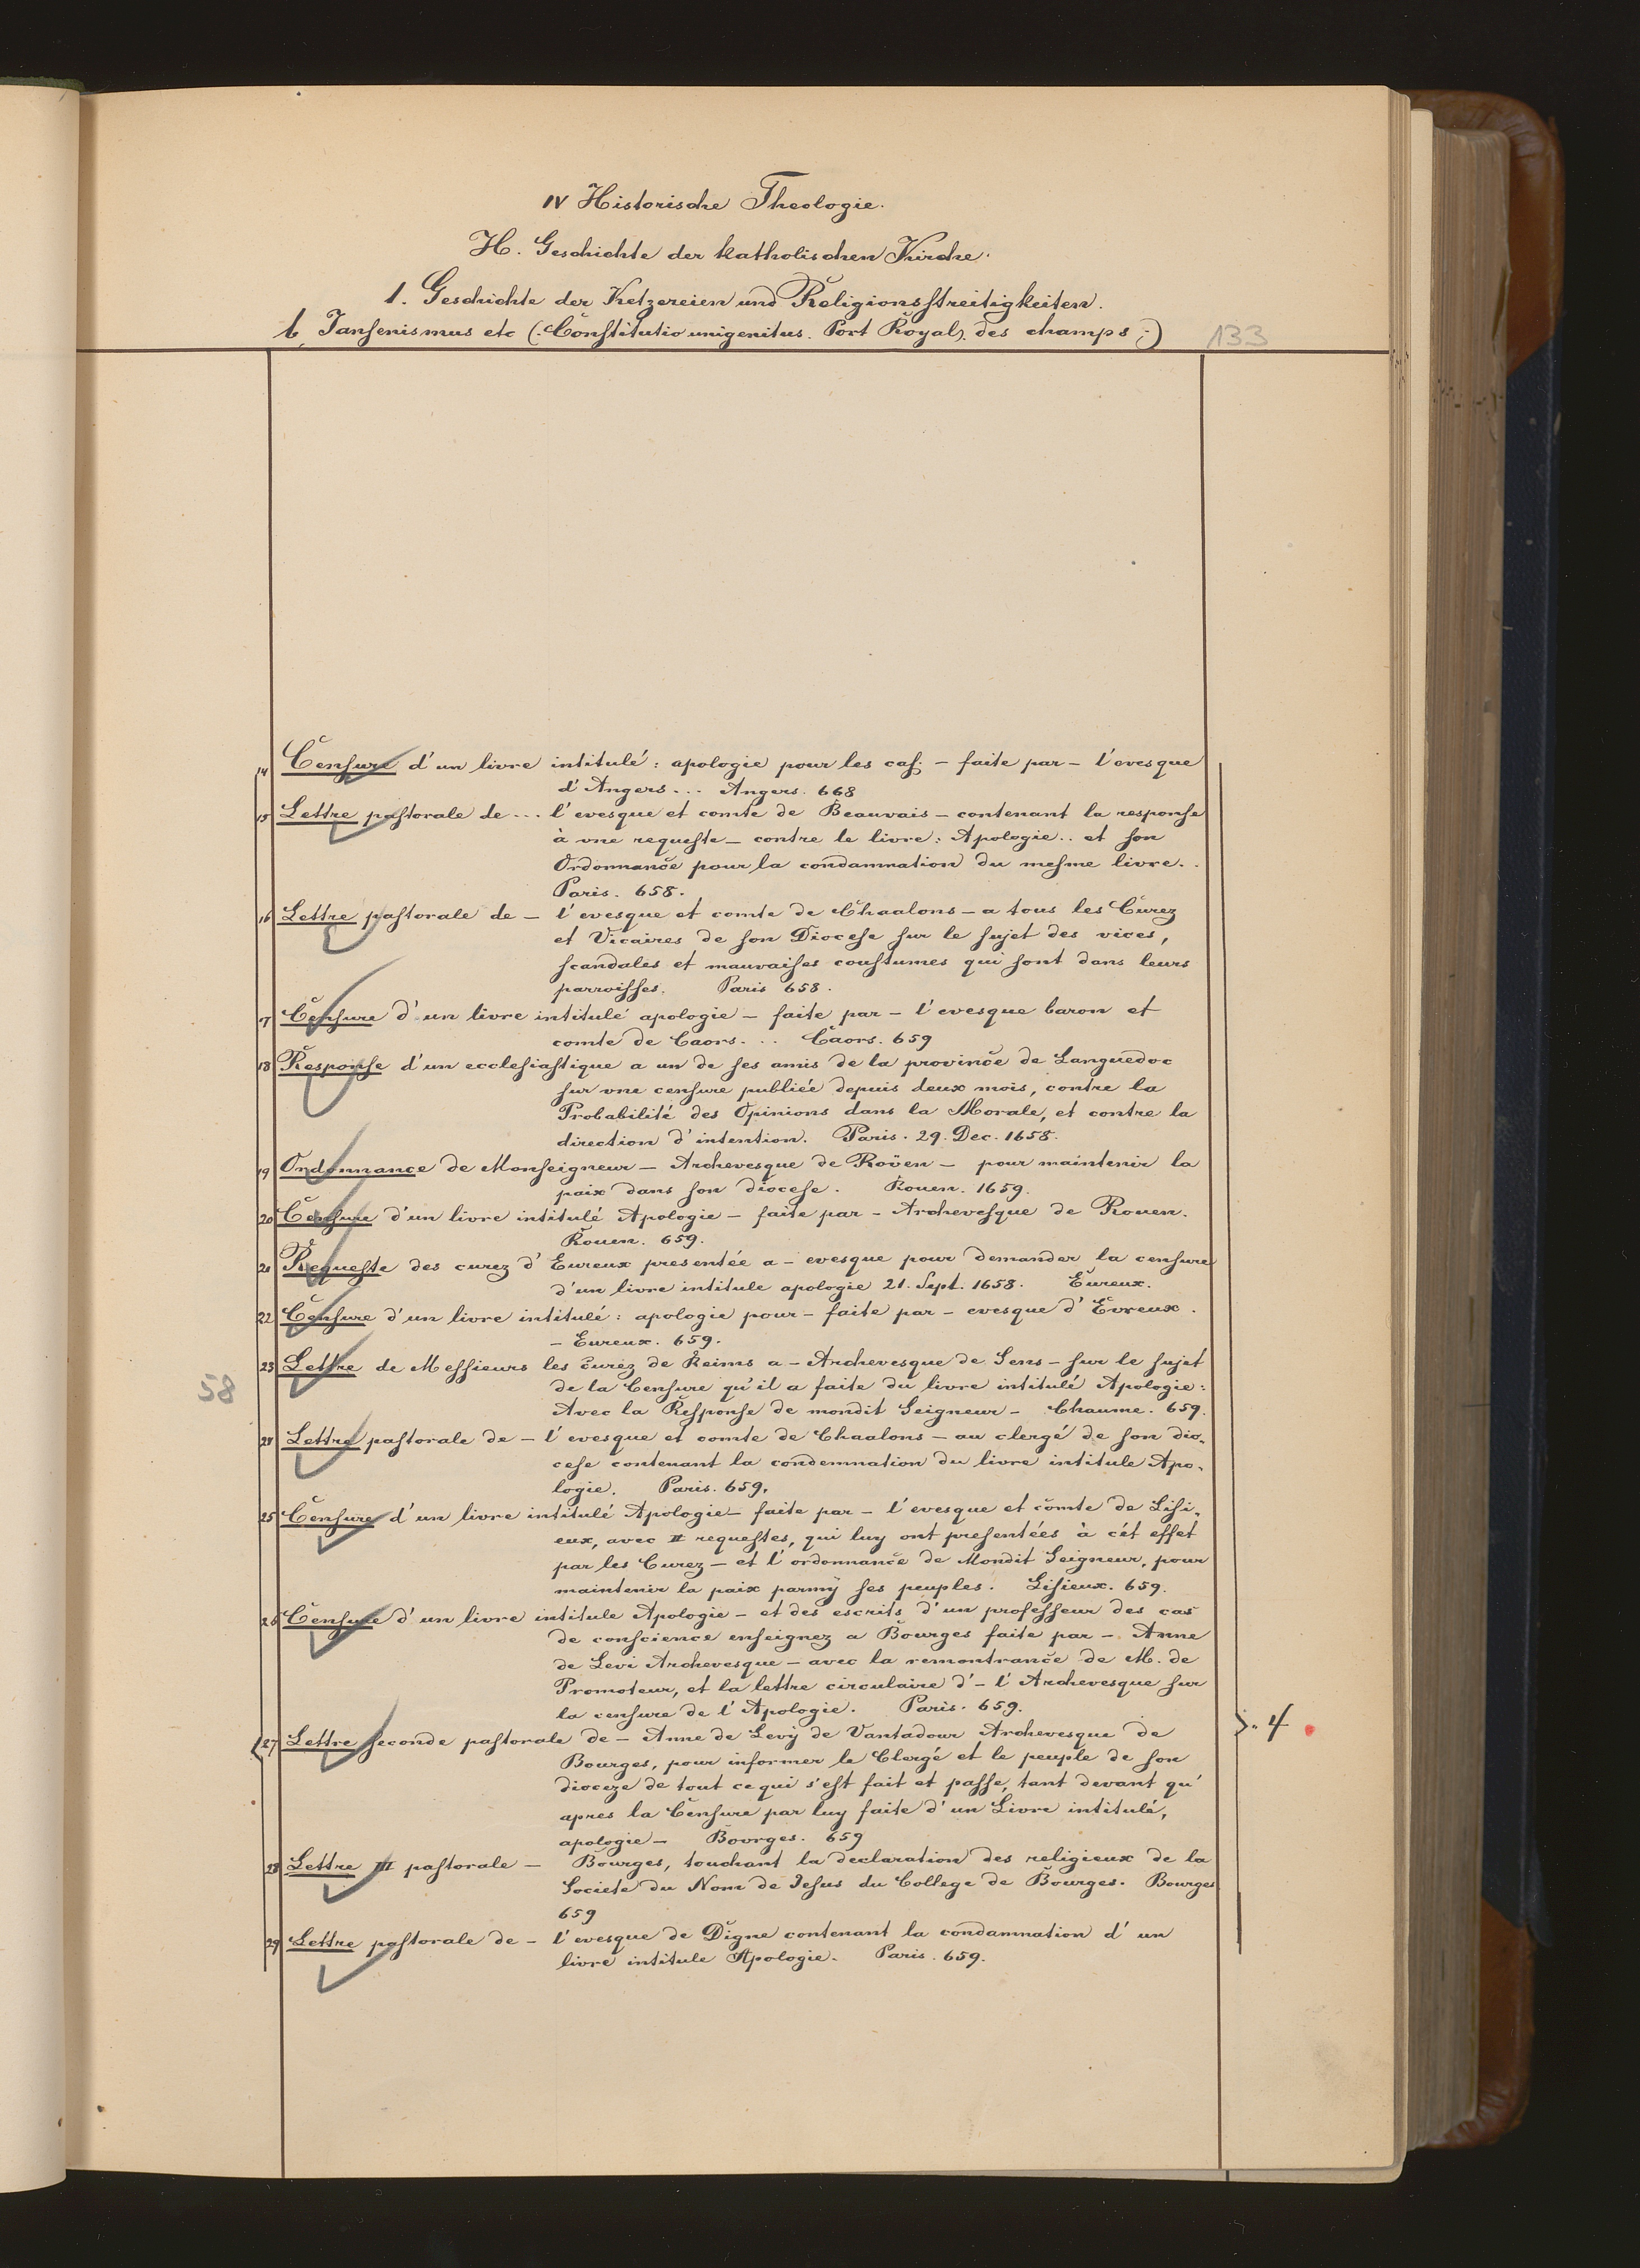 IV Historische Theologie.
H. Geschichte der katholischen Kirche.
1. Geschichte der Ketzereien und Religionsstreitigkeiten.
b, Jansenismus etc (: Constitutio unigenitus. Port Royal, des champs :)
133
14 Censure d'un livre intitulé: apologie pour les cas; – faite par – l'evesque
d'Angers... Angers. 668
15 Lettre pastorale de ... l'evesque et comte de Beauvais – contenant la response
à vne requeste – contre le livre: Apologie.. et son
Ordonnance pour la condamnation du mesme livre..
Paris. 658.
16 Lettre pastorale de – l'evesque et comte de Chaalons – a tous les Curez
et Vicaires de son Diocese sur le sujet des vices,
scandales et mauvaises coustumes qui sont dans leurs
parroisses. Paris 658.
17 Censure d'un livre intitulé apologie – faite par – l'evesque baron et
comte de Caors... Caors. 659
18 Response d'un ecclesiastique a un de ses amis de la province de Languedoc
sur vne censure publiée depuis deux mois, contre la
Probabilité des Opinions dans la Morale, et contre la
direction d'intention. Paris. 29. Dec. 1658.
19 Ordonnance de Monseigneur – Archevesque de Roüen – pour maintenir la
paix dans son diocese. Rouen. 1659.
20 Censure d'un livre intitulé Apologie – faite par – Archevesque de Rouen.
Rouen. 659.
21 Requeste des curez d'Eureux presentée a – evesque pour demander la censure
d'un livre intitule apologie 21. Sept. 1658. Eureux.
22 Censure d'un livre intitulé: apologie pour – faite par – evesque d'Evreux.
– Eureux. 659.
23 Lettre de Messieurs les curez de Reims a – Archevesque de Sens – sur le sujet
58
de la Censure qu'il a faite du livre intitulé Apologie:
Avec la Response de mondit Seigneur – Chaume. 659.
24 Lettre pastorale de – l'evesque et comte de Chaalons – au clergé de son dio-
cese contenant la condemnation du livre intitule Apo-
logie. Paris. 659.
25 Censure d'un livre intitulé Apologie – faite par – l'evesque et comte de Lisi-
eux, avec II requestes, qui luy ont presentées à cét effet
par les Curez – et l'ordonnance de Mondit Seigneur, pour
maintenir la paix parmy ses peuples. Lisieux. 659.
26 Censure d'un livre intitule Apologie – et des escrits d'un professeur des cas
de conscience enseignez a Bourges faite par – Anne
de Levi Archevesque – avec la remontrance de M. de
Promoteur, et la lettre circulaire d' – l'Archevesque sur
la censure de l'Apologie. Paris. 659.
27 Lettre seconde pastorale de – Anne de Levy de Vantadour Archevesque de
4
Bourges, pour informer le Clergé et le peuple de son
dioceze de tout ce qui s'est fait et passe, tant devant qu'
apres la Censure par luy faite d'un Livre intitulé,
apologie – Bourges. 659
28 Lettre III pastorale – Bourges, touchant la declaration des religieux de la
Societe du Nom de Jesus du College de Bourges. Bourges
659
29 Lettre pastorale de – l'evesque de Digne contenant la condamnation d'un
livre intitule Apologie. Paris. 659.